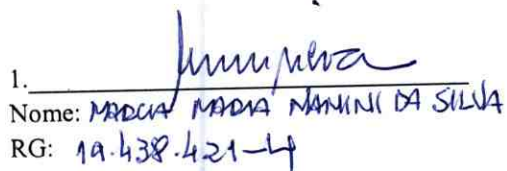 1.
Nome: MARCIA MARIA NANINI DA SILVA
RG: 19.438.421-4